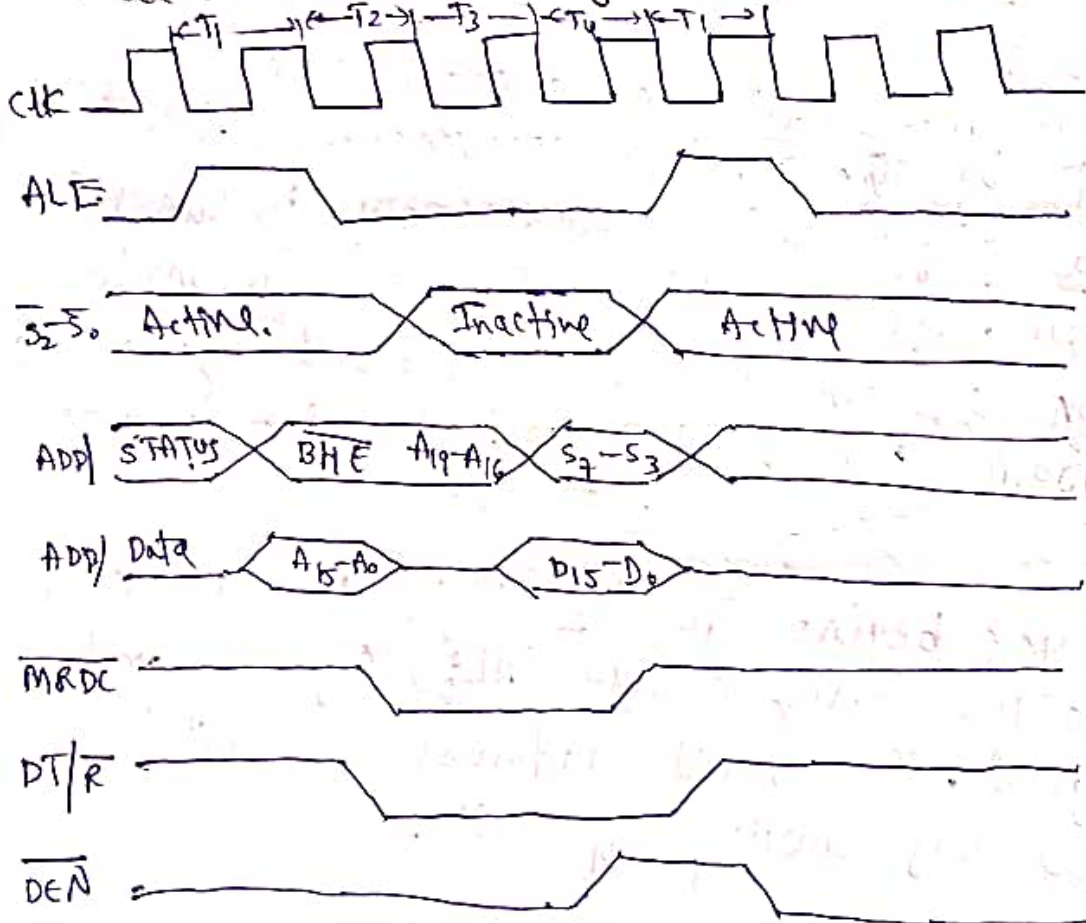 T1 T2 T3 T4 T1
ClK
ALE
S̅2-S̅0 Active. Inactive Active
ADD/ STATUS B̅H̅E̅ A19-A16 S7-S3
ADD/ Data A15-A0 D15-D0
M̅R̅D̅C̅
DT/R̅
D̅E̅N̅